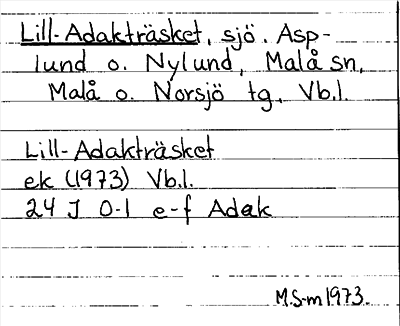 Lill-Adakträsket, sjö. Asp-
lund o. Nylund, Malå sn,
Malå o. Norsjö tg, Vb.l.
Lill-Adakträsket
ek (1973) Vb.l.
24 J 0-1 e-f Adak
M.S-m 1973.